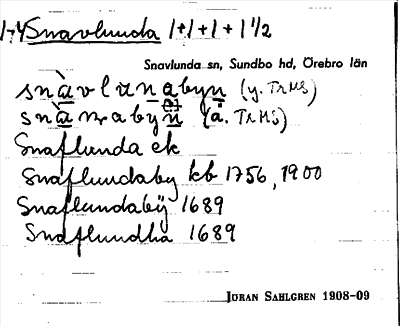 1-4 Snavlunda 1+1+1+1 1/2
Snavlunda sn, Sundbo hd, Örebro län
(y. TrMS)
(ä. TrMS)
Snaflunda ek
Snaflundaby kb 1756, 1900
Snaflundabÿ 1689
Snaflundha 1689
JÖRAN SAHLGREN 1908-09